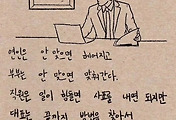 연인은 안 맞으면 헤어지고
부부는 안 맞으면 맞춰간다.
직원은 일이 힘들면 사표를 내면 되지만
대표는 끝까지 방법을 찾아서